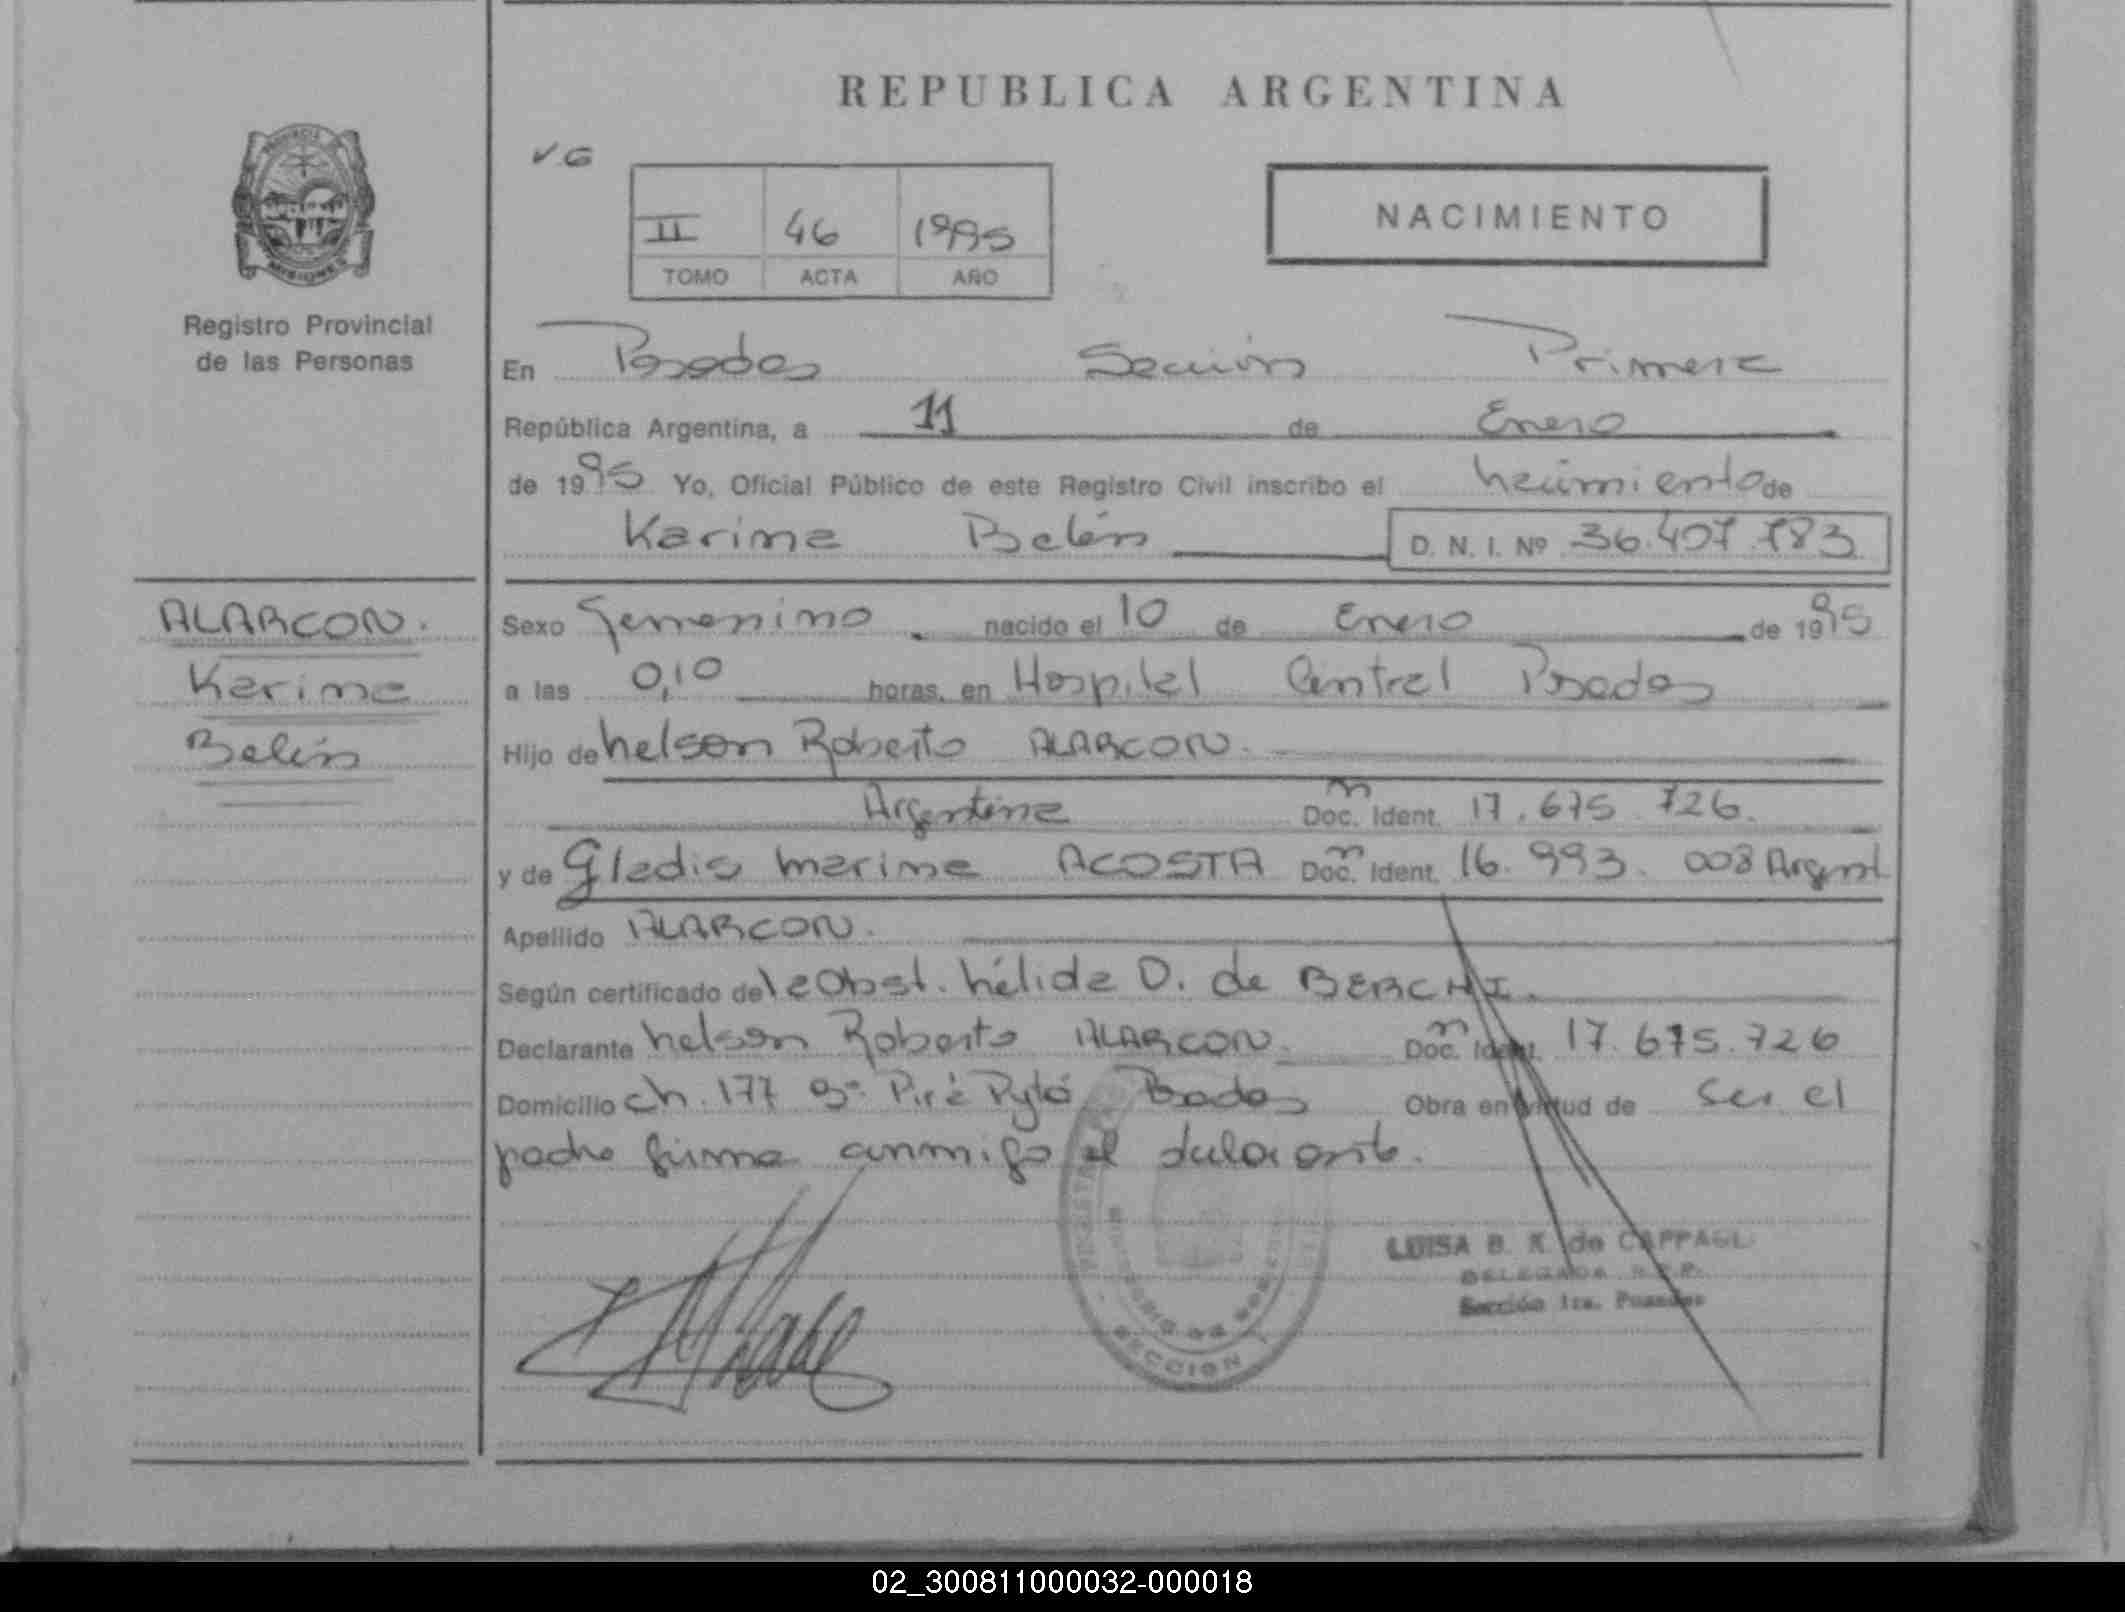 REPUBLICA ARGENTINA
V.G
II 46 1995
TOMO ACTA AÑO
NACIMIENTO
MISIONES
Registro Provincial
de las Personas
En Posadas Sección Primera
República Argentina, a 11 de Enero
de 1995 Yo, Oficial Público de este Registro Civil inscribo el nacimiento de
Karina Belén D. N. I. Nº 36.407.783
ALARCON.
Karina
Belén
Sexo femenino nacido el 10 de Enero de 1995
a las 0,10 horas, en Hospital Central Posadas
Hijo de Nelson Roberto ALARCON.
Argentina Doc. Ident. 17.675.726.
y de Gladis Marina ACOSTA Doc. Ident. 16.993.008 Argent
Apellido ALARCON.
Según certificado de la Obst. Nélida D. de BERCHI.
Declarante Nelson Roberto ALARCON. Doc. Ident. 17.675.726
Domicilio Ch. 177 Bº Pirá Pytá Posadas Obra en virtud de ser el
padre firma conmigo el declarante.
LUISA B. K. de CAPPAGLI
DELEGADA R.P.P.
Sección 1ra. Posadas
SECCION 1
02_300811000032-000018